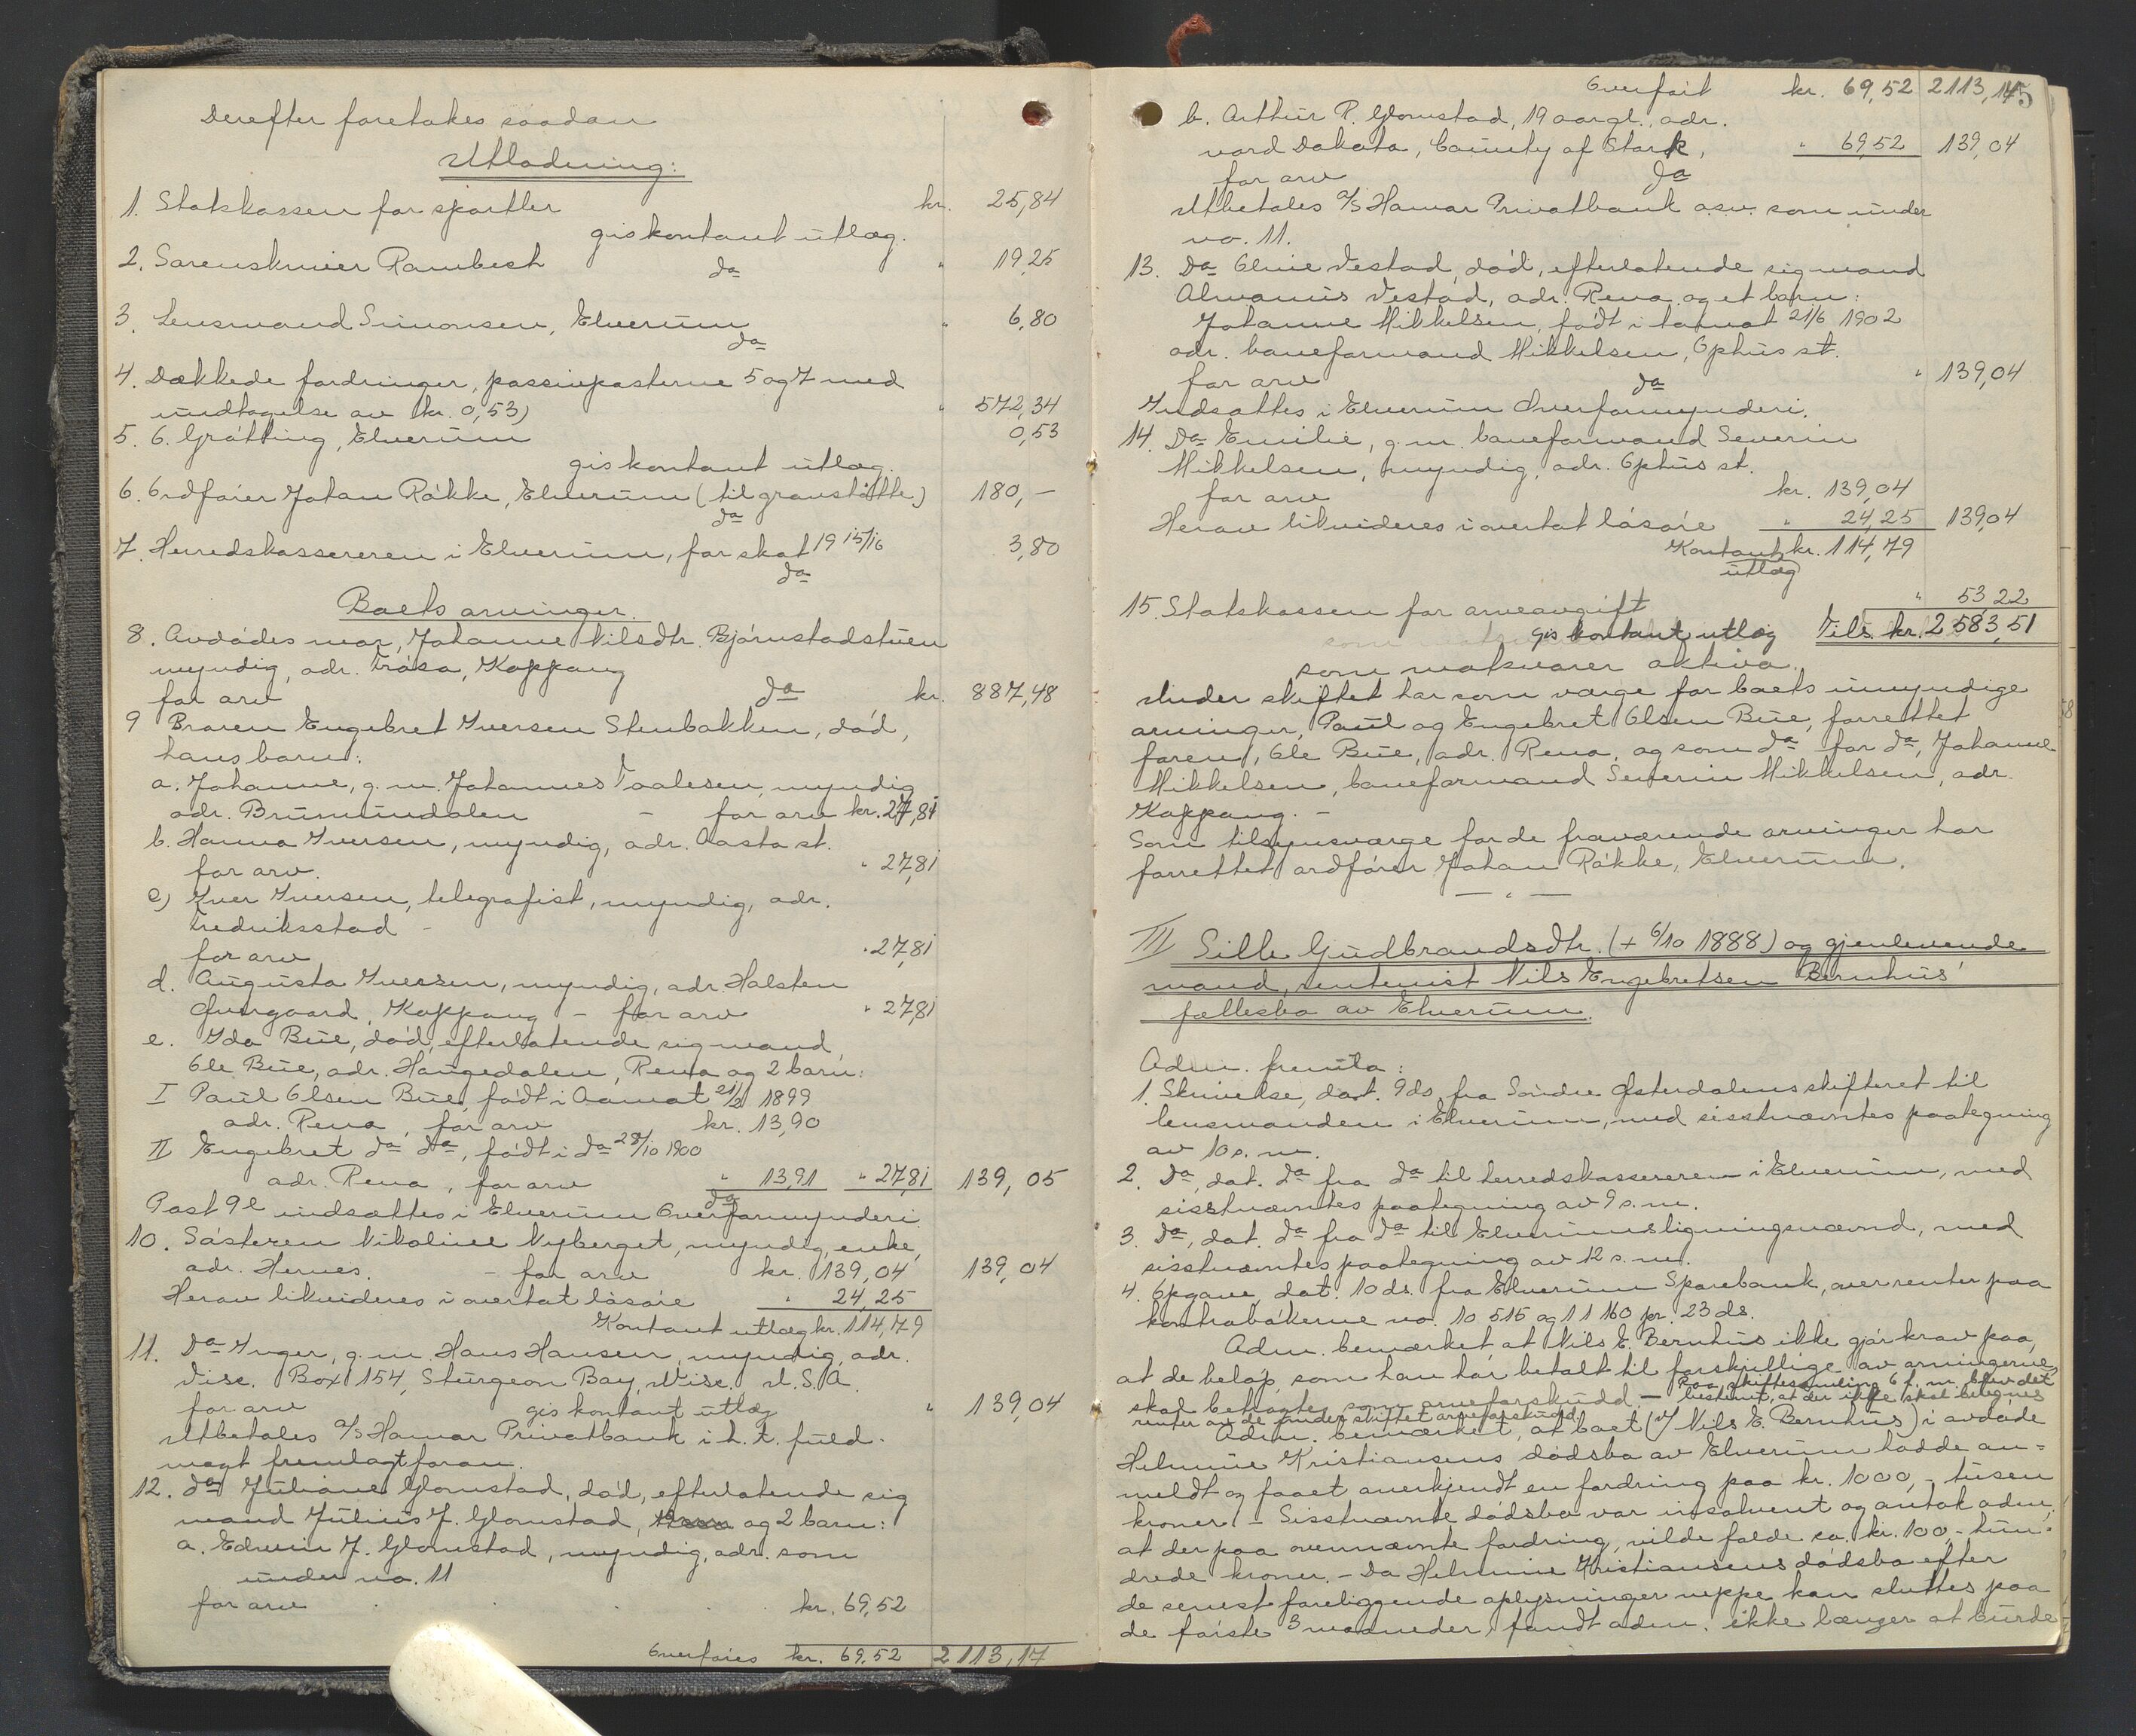 Derefter foretakes saadan
Utlodning:
1. Statskassen for sportler kr. 25,84
gis kontant utlæg.
2. Sorenskriver Rambech " 19,25
do
3. Lensmand Simonsen, Elverum " 6,80
do
4. Dækkede fordringer, passivposterne 5 og 7 med
undtagelse av kr. 0,53) " 572,34
5. O. Grøtting, Elverum 0,53
gis kontant utlæg.
6. Ordfører Johan Røkke, Elverum (til gravstøtte) 180,-
do
7. Herredskassereren i Elverum, for skat 1915/16 3,80
do
Boets arvinger.
8. Avdødes mor, Johanne Nilsdtr. Bjørnstadstuen
myndig, adr. Træsa, Koppang
for arv do kr. 887,48
9 Broren Engebret Iversen Stenbakken, død,
hans barn:
a. Johanne, g.m. Johannes Paalesen, myndig
adr. Brumunddalen - for arv kr. 27,81
b. Hanna Iversen, myndig, adr. Aasta st.
for arv. " 27,81
c) Iver Iversen, telegrafist, myndig, adr.
Fredriksstad -
for arv " 27,81
d. Augusta Iversen, myndig, adr. Halsten
Øvergaard, Koppang - for arv " 27,81
e. Ida Bue, død, efterlatende sig mand
Ole Bue, adr. Haugedalen, Rena og 2 barn:
I Paul Olsen Bue, født i Aamot 21/2 1899
adr. Rena, for arv kr. 13,90
II Engebret do do, født i do 28/10 1900
adr. Rena, for arv " 13,91 " 27,81 139,05
do
Post 9e indsættes i Elverum Overformynderi.
10. Søsteren Nikoline Nyberget, myndig, enke,
adr. Hernes. - for arv kr. 139,04 139,04
Herav likvideres i overtat løsøre " 24,25
Kontant utlæg kr. 114,79
11. Do Inger, g.m. Hans Hansen, myndig, adr.
Disc. Box 154, Sturgeon Bay, Wisc. U.S.A.
for arv gis kontant utlæg " 139,04
Utbetales A/S Hamar Privatbank i h. t. fuld-
magt fremlagt foran.
12. do Juliane Glomstad, død, efterlatende sig
mand Julius J. Glomstad, og 2 barn:
a. Edwin J. Glomstad, myndig, adr. som
under no. 11
for arv kr. 69,52
Overføres kr. 69,52 2113,17
Overført kr. 69,52 2113,17
b. Arthur R. Glomstad, 19 aar gl., adr.
nord Dakota, County of Stark, " 69,52 139,04
for arv do
Utbetales A/S Hamar Privatbank osv. som under
no. 11.
13. Do Oline Vestad, død, efterlatende sig mand
Alvanius Vestad, adr. Rena og et barn:
Johanne Mikkelsen, født i Aamot 21/6 1902
adr. baneformand Mikkelsen, Ophus st.
for arv do " 139,04
Indsættes i Elverum Overformynderi.
14. Do Emilie, g.m. baneformand Severin
Mikkelsen, myndig, adr. Ophus st.
for arv kr. 139,04
Herav likvideres i overtat løsøre " 24,25 139,04
Kontant kr. 114,79
utlæg
15. Statskassen for arveavgift " 53 22
gis kontant utlæg Tils. kr. 2583,51
som motsvarer aktiva.
Under skiftet har som værge for boets umyndige
arvinger, Paul og Engebret Olsen Bue, forrettet
faren, Ole Bue, adr. Rena, og som do for do, Johanne
Mikkelsen, baneformand Severin Mikkelsen, adr.
Koppang. -
Som tilsynsværge for de fraværende arvinger har
forrettet ordfører Johan Røkke, Elverum.
- " -
III Sille Gudbrandsdtr. (+ 6/10 1888) og gjenlevende
mand, rentenist Nils Engebretsen Bernhus'
fællesbo av Elverum.
Adm. fremla:
1. Skrivelse, dat. 9 ds. fra Søndre Østerdalens skifteret til
lensmanden i Elverum, med sisstnævntes paategning
av 10 s. m.
2. Do, dat. do fra do til herredskassereren i Elverum, med
sisstnævntes paategning av 9 s. m.
3. Do, dat. do fra do til Elverums ligningsnævnd, med
sisstnævntes paategning av 12 s. m.
4. Opgave, dat. 10 ds. fra Elverum Sparebank, over renter paa
kontrabøkerne no. 10 515 og 11 160 pr. 23 ds.
Adm. bemærket, at Nils E. Bernhus ikke gjør krav paa,
at de beløp, som han har betalt til forskjellige av arvingerne,
skal betragtes som arveforskudd. - Paa skiftesamling 6 f. m. blev det bestemt, at der ikke skal beregnes
renter av de under skiftet arveforskudd.
Adm. bemærket, at boet (v/ Nils E. Bernhus) i avdøde
Helmine Kristiansens dødsbo av Elverum hadde an-
meldt og faaet anerkjendt en fordring paa kr. 1000,- tusen
kroner. - Sisstnævnte dødsbo var insolvent og antok adm.,
at der paa ovennævnte fordring vilde falde ca. kr. 100,- hun-
drede kroner. - Da Helmine Kristiansens dødsbo efter
de senest foreliggende oplysninger neppe kan sluttes paa
de første 3 maaneder, fandt adm. ikke længer at burde